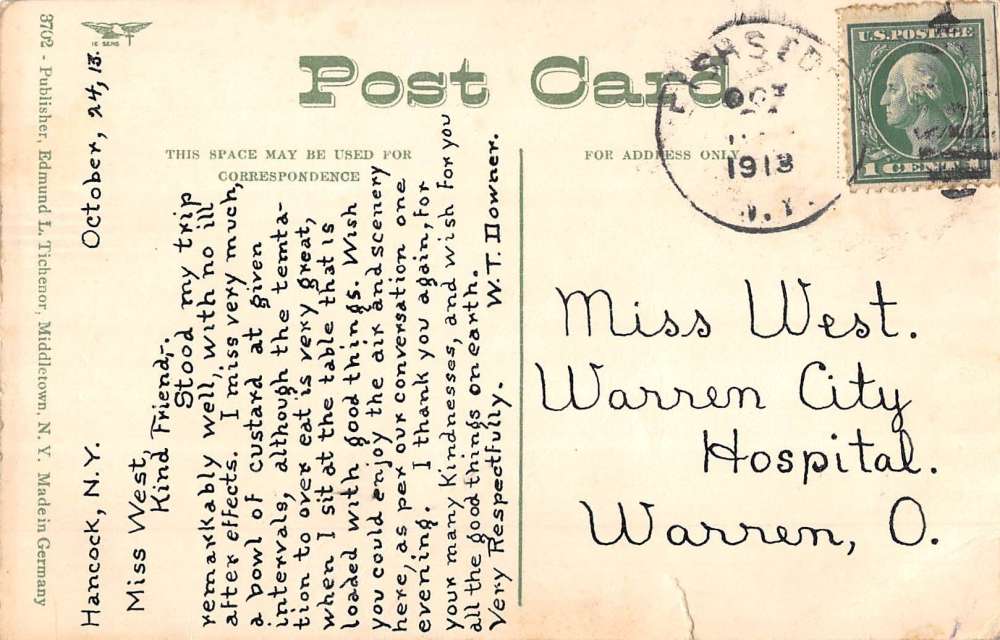 3702 - Publisher, Edmund L. Tichenor, Middletown, N. Y. Made in Germany
Post Card
THIS SPACE MAY BE USED FOR
CORRESPONDENCE
FOR ADDRESS ONLY
OCT
1913
N.Y.
U.S. POSTAGE
1 CENT
Hancock, N.Y. October, 24, 13.
Miss West,
Kind Friend,-.
Stood my trip
remarkably well, with no ill
after effects. I miss very much,
a bowl of custard at given
intervals, although the temta-
tion to over eat is very great,
when I sit at the table that is
loaded with good things. Wish
you could enjoy the air and scenery
here, as per our conversation one
evening. I thank you again, for
your many Kindnesses, and wish for you
all the good things on earth.
Very Respectfully. W.T. Downer.
Miss West.
Warren City
Hospital.
Warren, O.